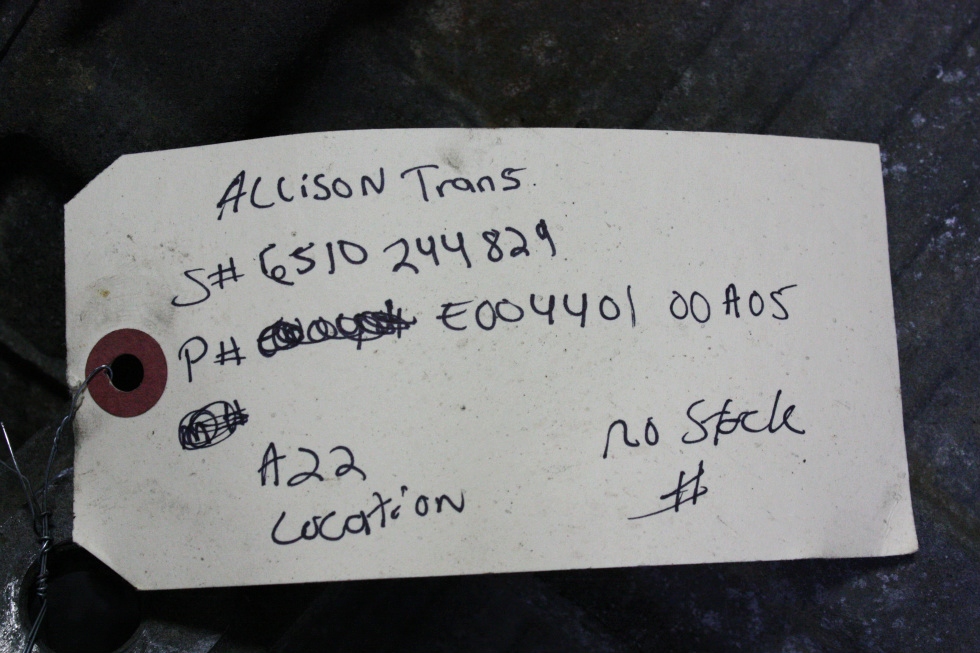 ALLiSON Trans
S# 6510 244829
P# E004401 00A05
A22
Location
no Stock
#